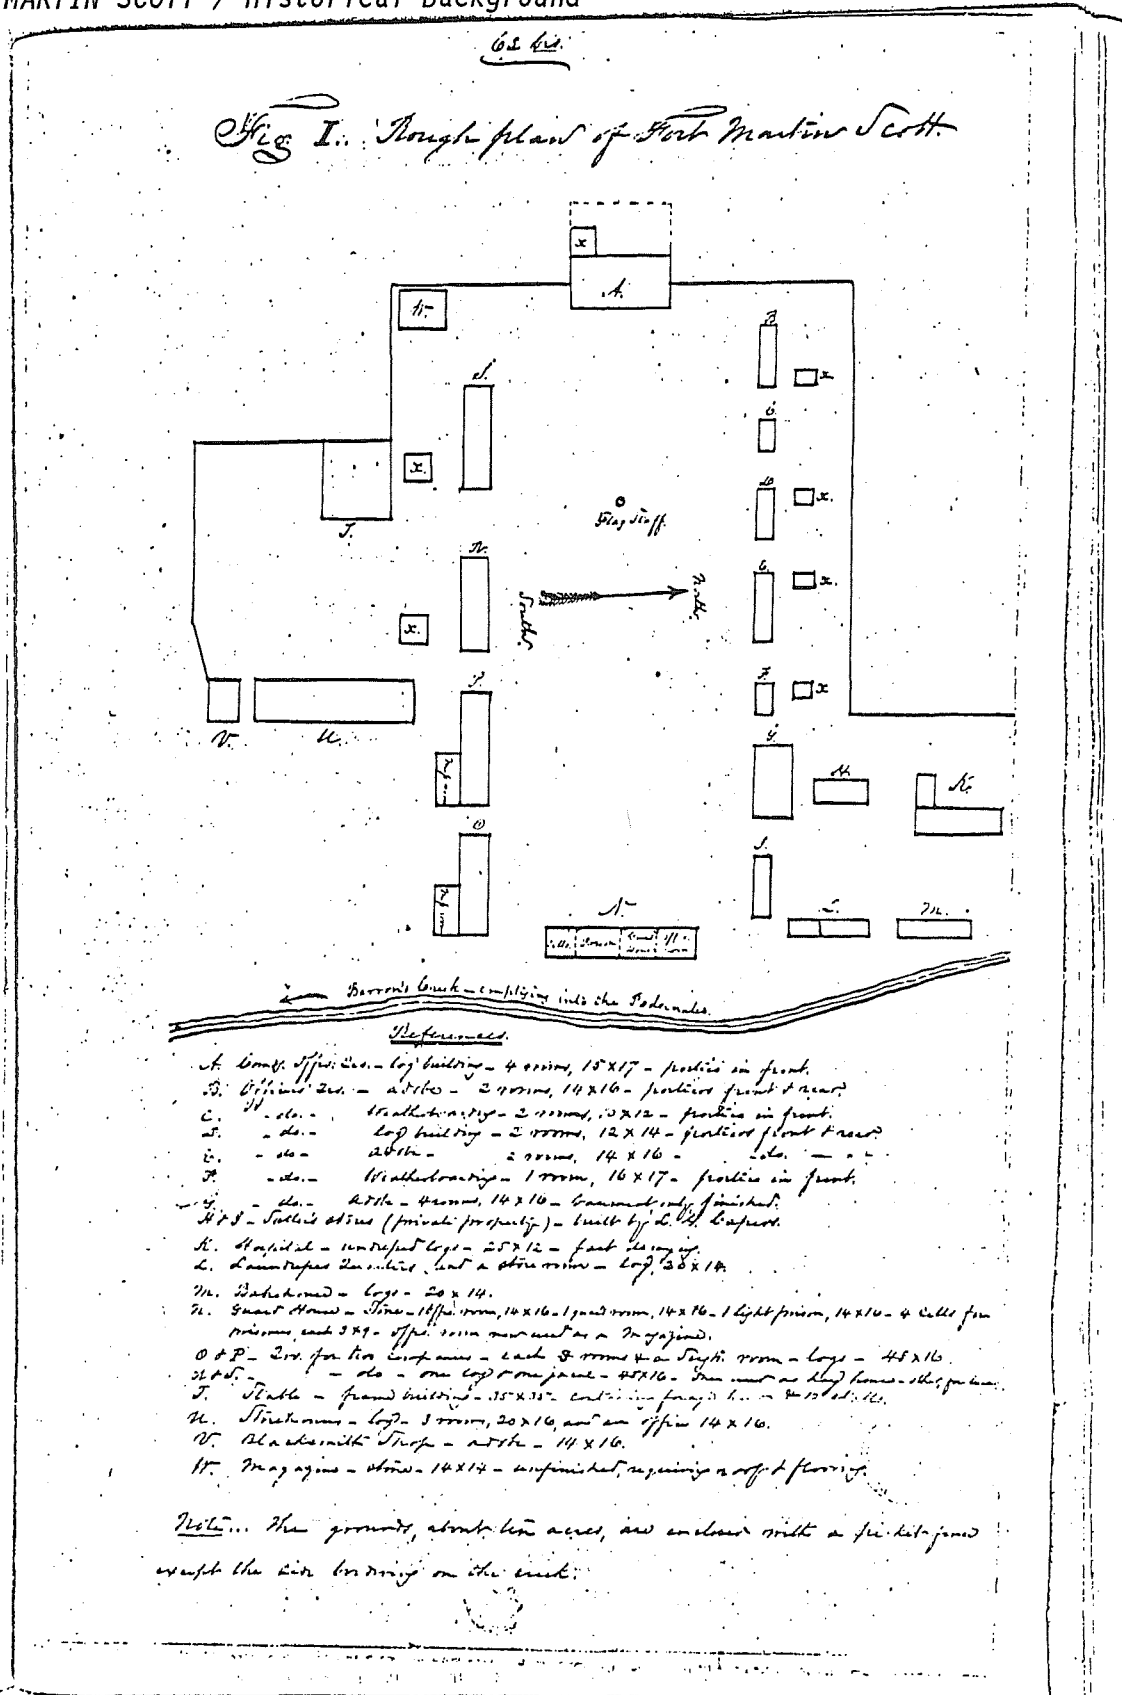 MARTIN SCOTT / Historical Background
62 bis.
Fig I. Rough plan of Fort Martin Scott
x
A.
W.
B
S.
x
C
x.
D
x.
Flag Staff.
T.
R.
E
x.
South.
North.
x.
F
x
P
V.
U.
G
H.
K.
O
I.
N
L.
M.
Cells. Prison Guard room Off. room
Barron's Creek - emptying into the Pedernales.
References.
A. Comg. Offrs. Qrs. - log building - 4 rooms, 15 x 17 - portico in front.
B. Officers' Qrs. - adobe - 2 rooms, 14 x 16 - porticos front & rear.
C. " - do. - Weatherboarding - 2 rooms, 10 x 12 - portico in front.
D. - do. - log building - 2 rooms, 12 x 14 - porticos front & rear.
E. - do - adobe - 2 rooms, 14 x 16 - - do. -
F. - do. - Weatherboarding - 1 room, 16 x 17 - portico in front.
G. - do - adobe - 4 rooms, 14 x 16 - basement only finished.
H & I - Sutler's stores (private property) - built by
K. Hospital - logs - 25 x 12 - fast decaying.
L. Laundress Quarters and a store room - log, 20 x 14.
M. Bakehouse - logs - 20 x 14.
N. Guard House - Stone - 1 offrs. room, 14 x 16 - 1 guard room, 14 x 16 - 1 light prison, 14 x 16 - 4 cells for
prisoners, each 3 x 9 - offrs. room now used as a Magazine.
O & P - Qrs. for two companies - each 2 rooms & a room - logs - 45 x 16.
R & S. - - do - one log & one - 45 x 16 -
T. Stable - framed building - 35 x 35 - containing forage
U. Storehouse - log - 3 rooms, 20 x 16, and an office 14 x 16.
V. Blacksmith Shop - adobe - 14 x 16.
W. Magazine - stone - 14 x 14 - unfinished, requiring roof & flooring.
Note... The grounds, about ten acres, are enclosed with a picket fence
except the side bordering on the creek.